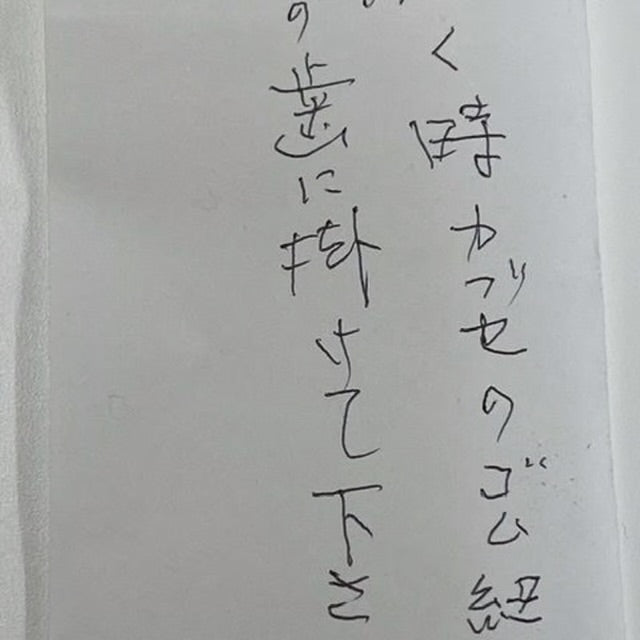 く時カブセのゴム紐
の歯に掛けて下さ